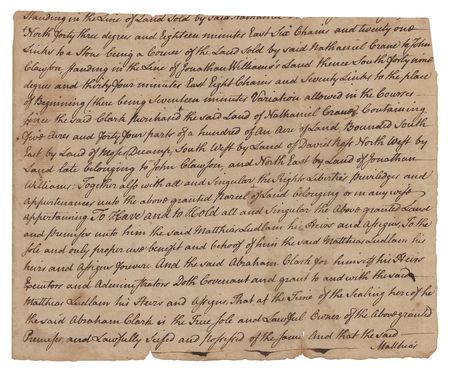 Standing in the Line of Land Sold by said Nathaniel
North forty three degrees and Eighteen minutes East Six Chains and twenty one
Links to a Stone being a Corner of the Land Sold by said Nathaniel Crane to John
Clawson, Standing in the Line of Jonathan Williams's Land thence South forty nine
degrees and thirty four minutes East Eight Chains and Seventy Links to the place
of Beginning (there being Seventeen minutes Variation allowed in the Courses
Since the said Clark Purchased the said Land of Nathaniel Crane) Containing
Five Acres and forty four parts of a hundred of An Acre of Land Bounded South
East by Land of Moses Decamp, South West by Land of David Ross North West by
Land late belonging to John Clawson, and North East by Land of Jonathan
Williams: Together also with all and Singular the Rights Liberties priviledges and
appurtenances unto the above granted Parcel of Land belonging or in any wise
appertaining To Have and to Hold all and Singular the Above granted Land
and premises unto him the said Matthias Ludlam his Heirs and Assigns, To the
Sole and only proper use benefit and behoof of him the said Matthias Ludlam his
heirs and Assigns forever. And the said Abraham Clark for himself his Heirs
Executors and Administrators Doth Covenant and grant to and with the said
Matthias Ludlam his Heirs and Assigns, That at the Time of the Sealing hereof he
the said Abraham Clark is the True Sole and Lawful Owner of the Above granted
Premises and Lawfully Seized and Possessed of the same And that the said
Matthias